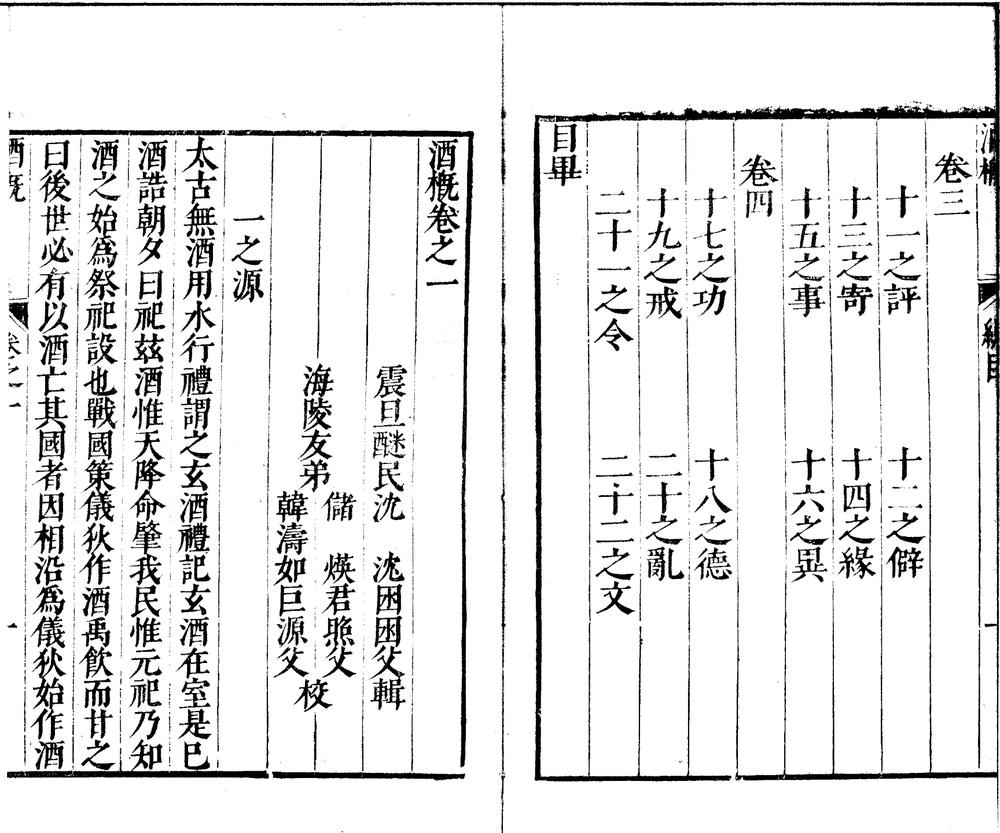 酒概
總目
一
卷三
十一之評 十二之僻
十三之寄 十四之緣
十五之事 十六之異
卷四
十七之功 十八之德
十九之戒 二十之亂
二十一之令 二十二之文
目畢
酒概卷之一
震旦醚民沈 沈困困父輯
海陵友弟
儲 煐君照父
韓濤如巨源父
校
一之源
太古無酒用水行禮謂之玄酒禮記玄酒在室是巳
酒誥朝夕曰祀玆酒惟天降命肇我民惟元祀乃知
酒之始爲祭祀設也戰國策儀狄作酒禹飮而甘之
曰後世必有以酒亡其國者因相沿爲儀狄始作酒
酒概
卷之一
一